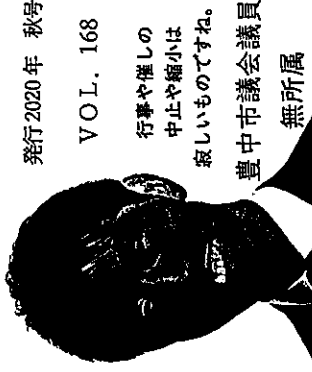 発行2020年 秋号
VOL. 168
行事や催しの
中止や縮小は
寂しいものですね。
豊中市議会議員
無所属